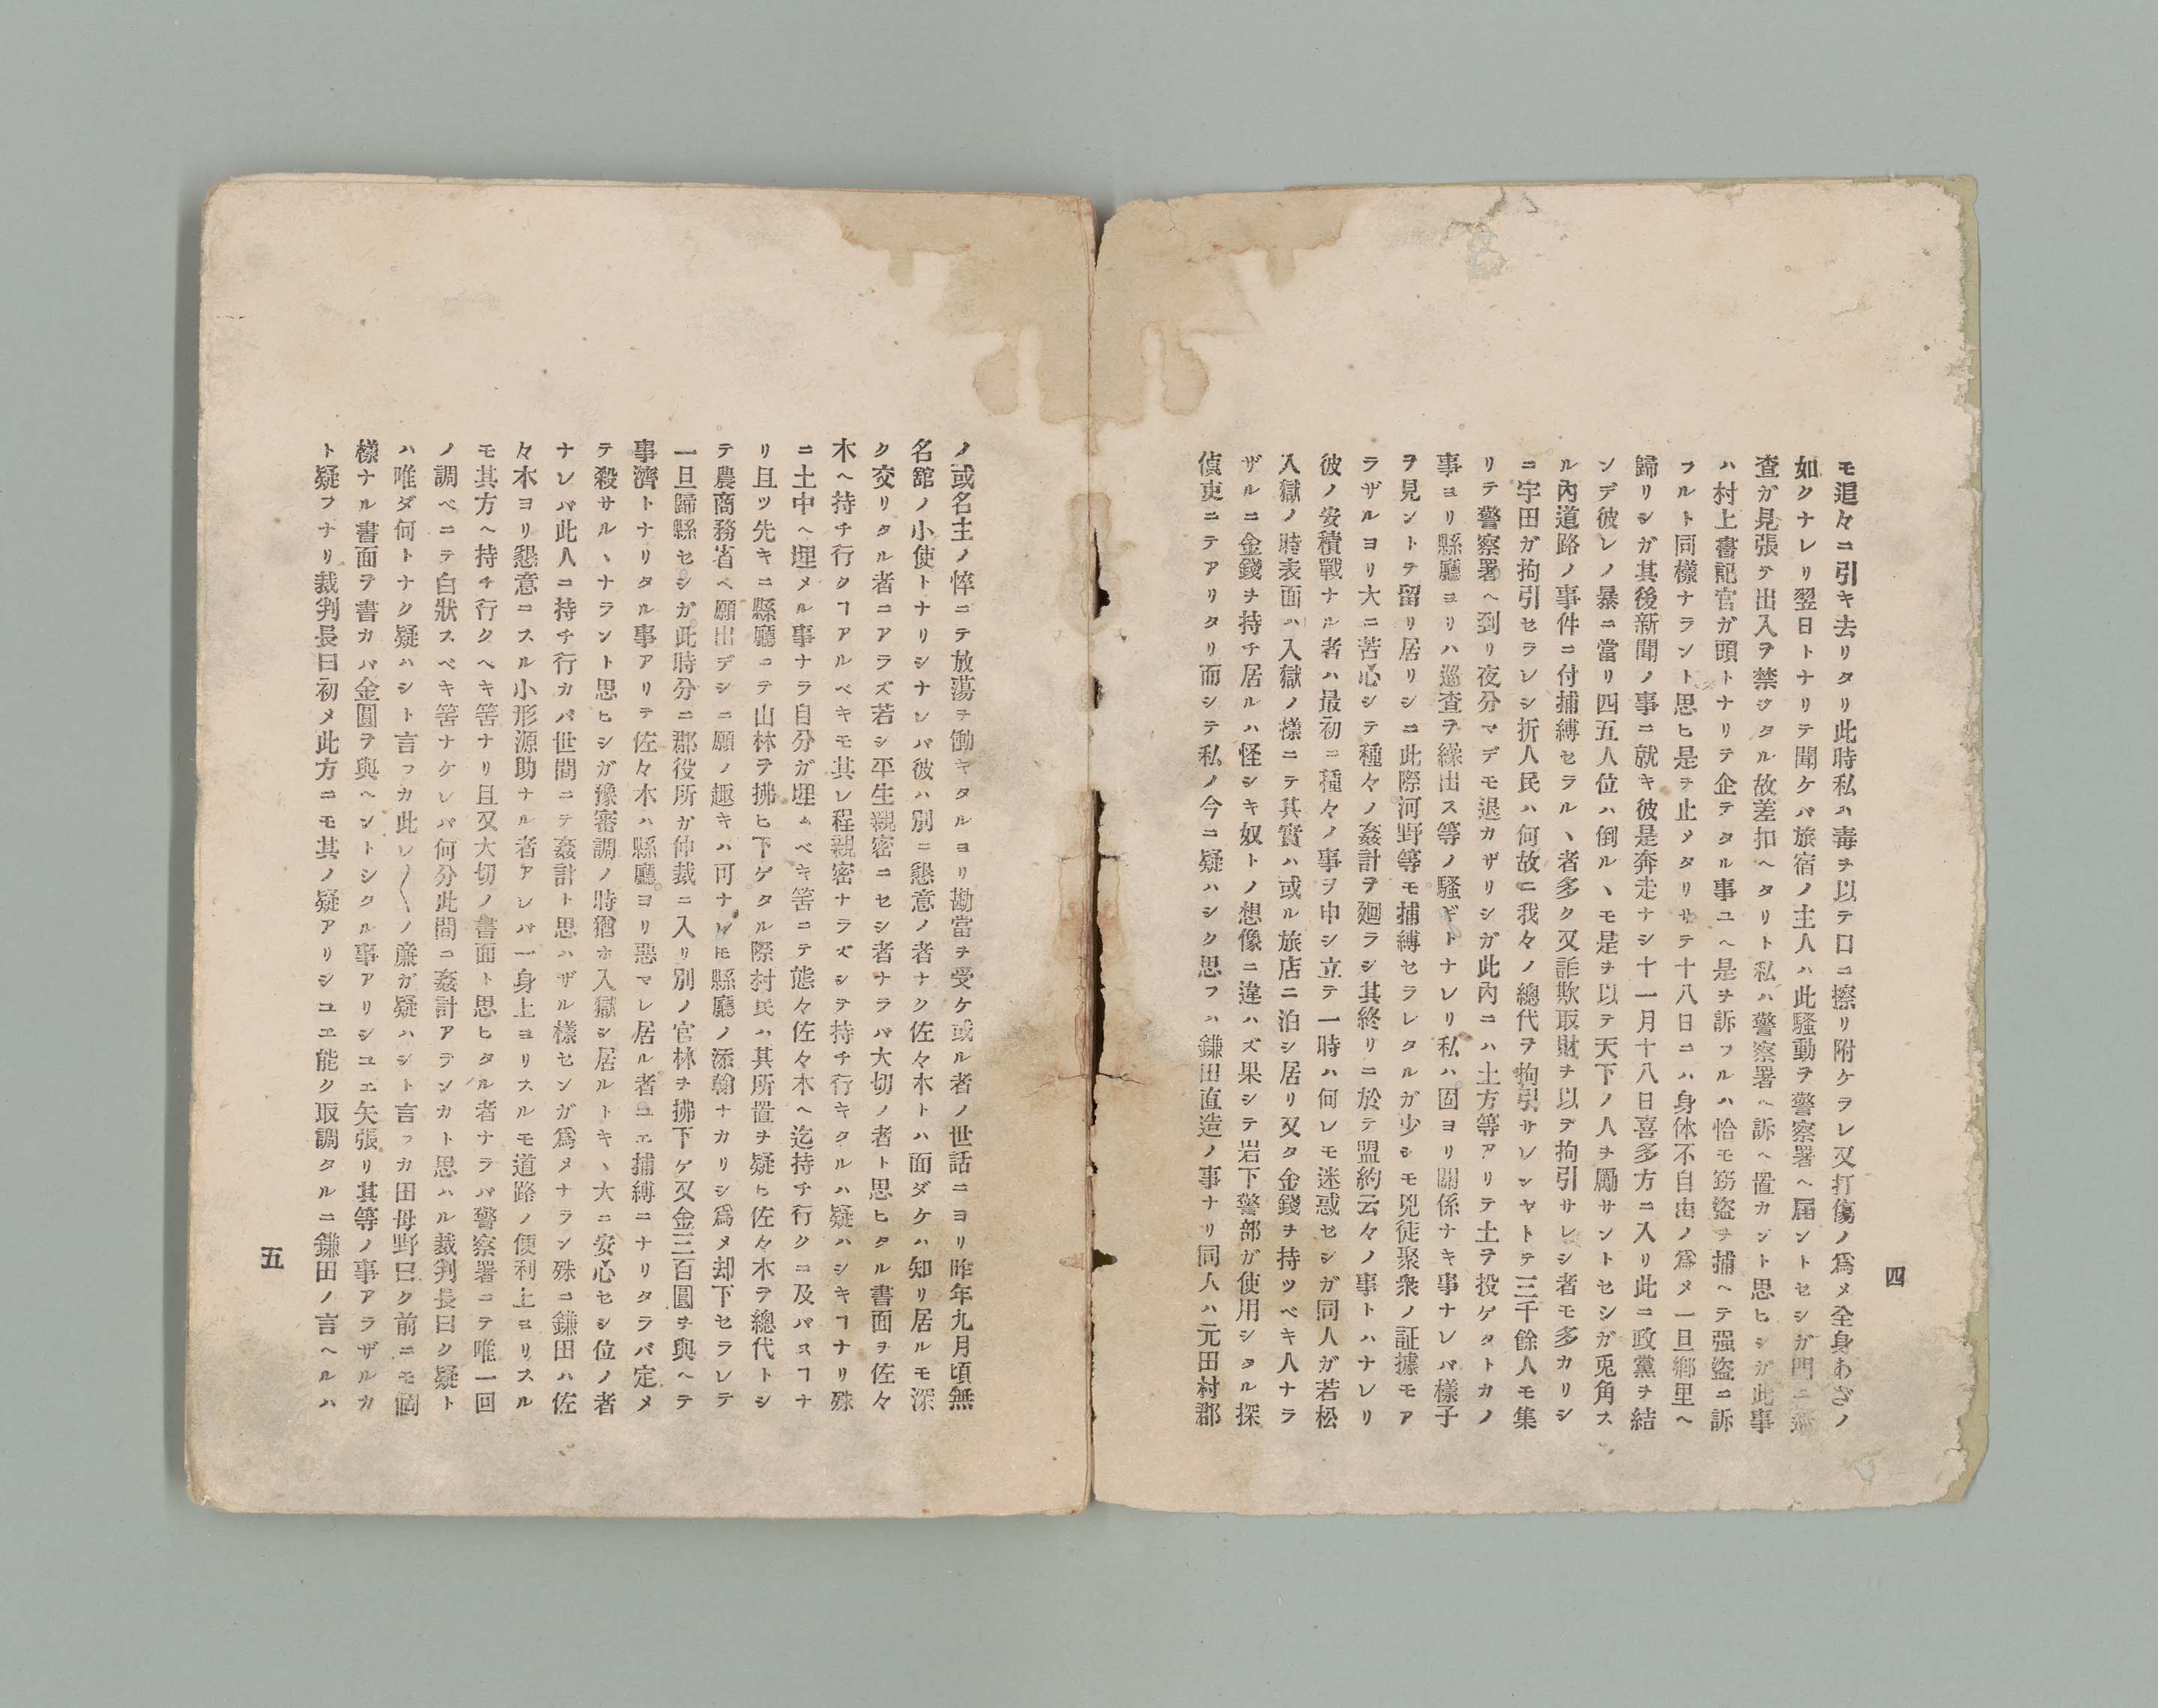 四
モ追々ニ引キ去リタリ此時私ハ毒ヲ以テ口ニ擦リ附ケラレ又打傷ノ爲メ全身あざノ
如クナレリ翌日トナリテ聞ケバ旅宿ノ主人ハ此騷動ヲ警察署ヘ届ントセシガ門ニ巡
査ガ見張テ出入ヲ禁ジタル故差扣ヘタリト私ハ警察署ヘ訴ヘ置カント思ヒシガ此事
ハ村上書記官ガ頭トナリテ企テタル事ユヘ是ヲ訴フルハ恰モ窃盜ヲ捕ヘテ强盜ニ訴
フルト同樣ナラント思ヒ是ヲ止メタリサテ十八日ニハ身体不自由ノ爲メ一旦鄕里ヘ
歸リシガ其後新聞ノ事ニ就キ彼是奔走ナシ十一月十八日喜多方ニ入リ此ニ政黨ヲ結
ンデ彼レノ暴ニ當リ四五人位ハ倒ルヽモ是ヲ以テ天下ノ人ヲ勵サントセシガ兎角ス
ル內道路ノ事件ニ付捕縛セラルヽ者多ク又詐欺取財ヲ以テ拘引サレシ者モ多カリシ
ニ宇田ガ拘引セラレシ折人民ハ何故ニ我々ノ總代ヲ拘引サレシヤトテ三千餘人モ集
リテ警察署ヘ到リ夜分マデモ退カザリシガ此內ニハ土方等アリテ土ヲ投ゲタトカノ
事ヨリ縣廳ヨリハ巡査ヲ繰出ス等ノ騷ギトナレリ私ハ固ヨリ關係ナキ事ナレバ樣子
ヲ見ントテ留リ居リシニ此際河野等モ捕縛セラレタルガ少シモ兇徒聚衆ノ証據モア
ラザルヨリ大ニ苦心シテ種々ノ姦計ヲ廻ラシ其終リニ於テ盟約云々ノ事トハナレリ
彼ノ安積戰ナル者ハ最初ニ種々ノ事ヲ申シ立テ一時ハ何レモ迷惑セシガ同人ガ若松
入獄ノ時表面ハ入獄ノ樣ニテ其實ハ或ル旅店ニ泊シ居リ又タ金錢ヲ持ツベキ人ナラ
ザルニ金錢ヲ持チ居ルハ怪シキ奴トノ想像ニ違ハズ果シテ岩下警部ガ使用シタル探
偵吏ニテアリタリ而シテ私ノ今ニ疑ハシク思フハ鎌田直造ノ事ナリ同人ハ元田村郡
ノ或名主ノ悴ニテ放蕩ヲ働キタルヨリ勘當ヲ受ケ或ル者ノ世話ニヨリ昨年九月頃無
名舘ノ小使トナリシナレバ彼ハ別ニ懇意ノ者ナク佐々木トハ面ダケハ知リ居ルモ深
ク交リタル者ニアラズ若シ平生親密ニセシ者ナラバ大切ノ者ト思ヒタル書面ヲ佐々
木ヘ持チ行クヿアルベキモ其レ程親密ナラズシテ持チ行キタルハ疑ハシキヿナリ殊
ニ土中ヘ埋メル事ナラ自分ガ埋ムベキ筈ニテ態々佐々木ヘ迄持チ行クニ及バスヿナ
リ且ツ先キニ縣廳ニテ山林ヲ拂ヒ下ゲタル際村民ハ其所置ヲ疑ヒ佐々木ヲ總代トシ
テ農商務省ヘ願出デシニ願ノ趣キハ可ナレ𪜈縣廳ノ添翰ナカリシ爲メ却下セラレテ
一旦歸縣セシガ此時分ニ郡役所ガ仲裁ニ入リ別ノ官林ヲ拂下ゲ又金三百圓ヲ與ヘテ
事濟トナリタル事アリテ佐々木ハ縣廳ヨリ惡マレ居ル者ユエ捕縛ニナリタラバ定メ
テ殺サルヽナラント思ヒシガ豫審調ノ時猶ホ入獄シ居ルトキヽ大ニ安心セシ位ノ者
ナレバ此人ニ持チ行カバ世間ニテ姦計ト思ハザル樣センガ爲メナラン殊ニ鎌田ハ佐
々木ヨリ懇意ニスル小形源助ナル者アレバ一身上ヨリスルモ道路ノ便利上ヨリスル
モ其方ヘ持チ行クヘキ筈ナリ且又大切ノ書面ト思ヒタル者ナラバ警察署ニテ唯一回
ノ調ベニテ白狀スベキ筈ナケレバ何分此間ニ姦計アランカト思ハル裁判長曰ク疑ト
ハ唯ダ何トナク疑ハシト言フカ此レ〳〵ノ廉ガ疑ハシト言フカ田母野曰ク前ニモ個
樣ナル書面ヲ書カバ金圓ヲ與ヘントシタル事アリシユエ矢張リ其等ノ事アラザルカ
ト疑フナリ裁判長曰初メ此方ニモ其ノ疑アリシユエ能ク取調タルニ鎌田ノ言ヘルハ
五